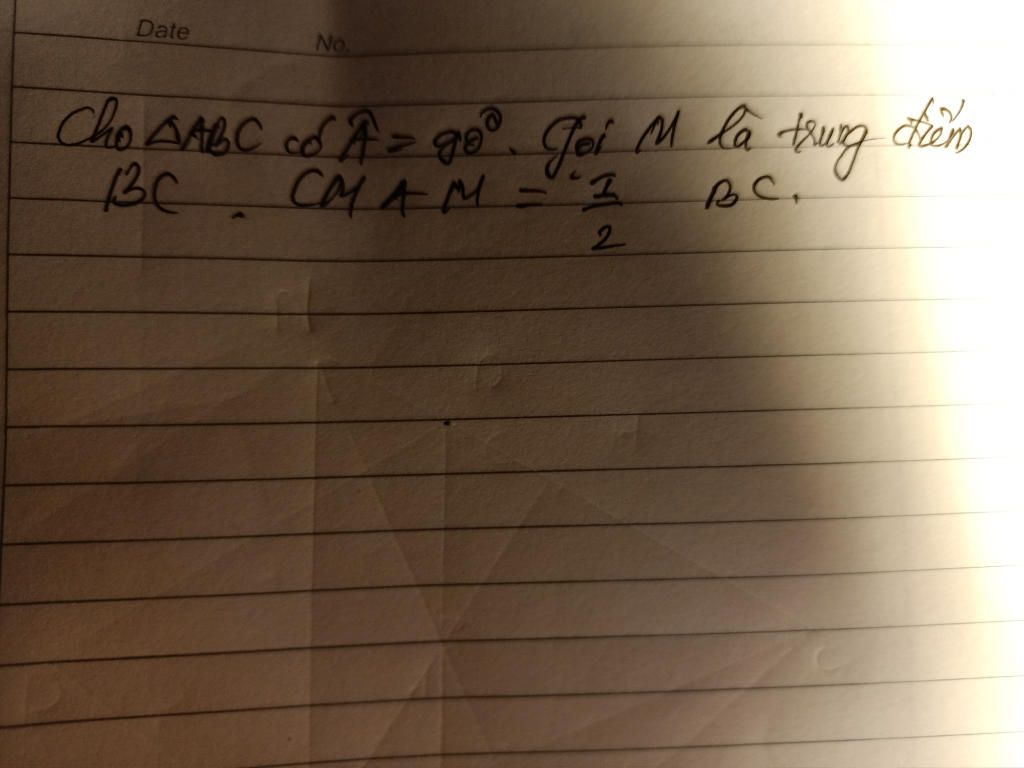 Date No.
Cho △ABC có Â = 90°. Gọi M là trung điểm
BC. CM AM = 1/2 BC.